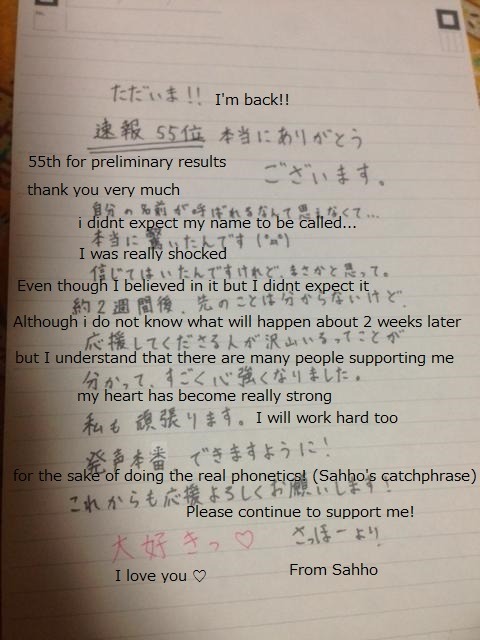 ただいま!! I'm back!!
速報 55位 本当にありがとう
55th for preliminary results
ございます。
thank you very much
自分の名前が呼ばれるなんて思えなくて...
i didnt expect my name to be called...
本当に驚いたんです
I was really shocked
信じてはいたんですけれど、まさかと思って。
Even though I believed in it but I didnt expect it
約2週間後、先のことは分からないけど、
Although i do not know what will happen about 2 weeks later
応援してくださる人が沢山いるってことが
but I understand that there are many people supporting me
分かって、すごく心強くなりました。
my heart has become really strong
私も頑張ります。 I will work hard too
発声本番 できますように!
for the sake of doing the real phonetics! (Sahho's catchphrase)
これからも応援よろしくお願いします!
Please continue to support me!
大好きっ♡ さっほーより
I love you ♡ From Sahho